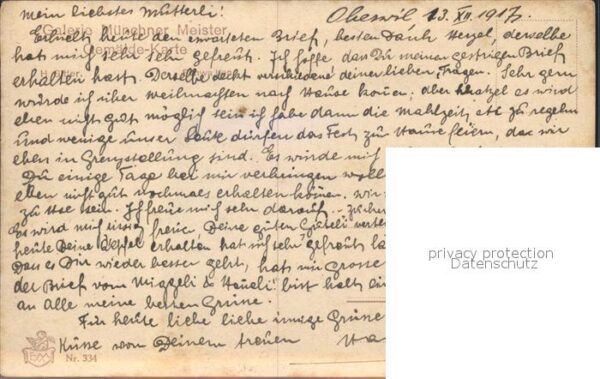 Mein liebstes Mutterli!
Oberwil 13. XII. 1917.
Galerie Münchner Meister
Gemälde-Karte
Erhielt heute den erwarteten Brief, besten Dank Herzel, derselbe
hat mich sehr sehr gefreut. Ich hoffe das Du meinen gestrigen Brief
erhalten hast. Derselbe deckt verschiedene deiner lieben Fragen. Sehr gern
würde ich über Weihnachten nach Hause kommen; aber es wird
eben nicht gut möglich sein ich habe dann die Mahlzeit, etc zu regeln
und wenige unser Leute dürfen das Fest zu Hause feiern, da wir
eben in Grenzstellung sind. Es würde mich
Du einige Tage bei mir verbringen
eben nicht gut nochmals erhalten können. wir
zu sein. Ich freue mich sehr darauf.
Es wird mich freuen Deine guten
heute Deine Äpfel erhalten hat mich sehr gefreut
Dass es Dir wieder besser geht, hat mir Grosse
der Brief vom & bist halt
an Alle meine besten Grüsse.
Für heute liebe liebe innige Grüsse
Küsse von Deinem treuen
Nr. 334
privacy protection
Datenschutz